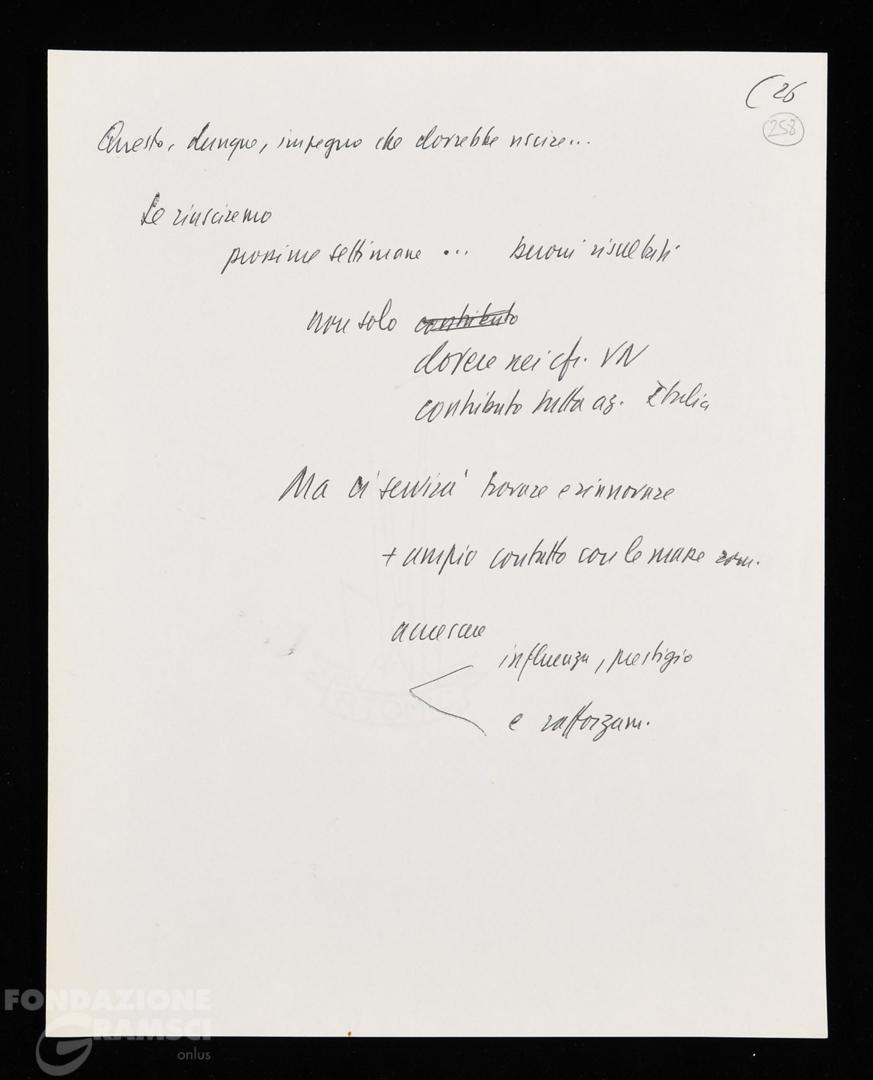 ( 26
258
Questo, dunque, impegno che dovrebbe uscire...
Se riusciremo
prossime settimane ... buoni risultati
non solo contributo
dovere nei cfr. VN
contributo tutta az. Italia
Ma ci servirà trovare e rinnovare
+ ampio contatto con le masse rom.
accrescere
influenza, prestigio
e rafforzam.
FONDAZIONE
GRAMSCI
onlus